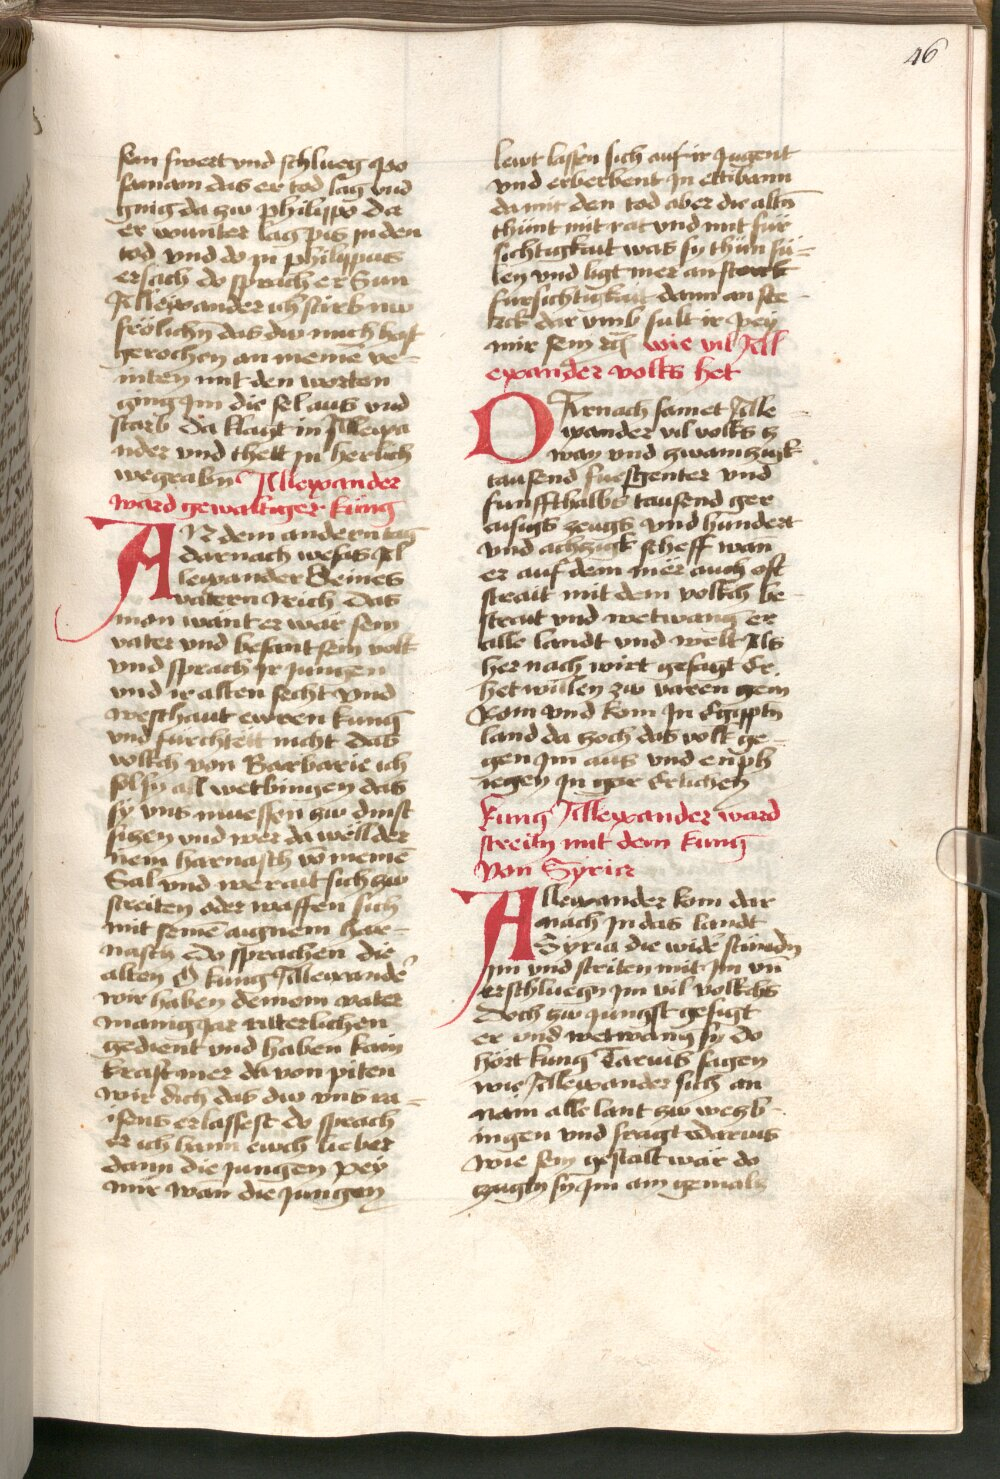 46
sein swert vnd schlueg po
saniam das er tod lag vnd
gnig da zw philippo da
er wunter lag pis in den
tod vnd do in philippus
ersach do sprach er Sun
Allexander ich stirb nw
frölichn das dw mich hast
gerochen an meine ve-
inten mit den worten
ging Im die sel aus vnd
starb da klagt in Allexa
nder vnd thett in herlich
wegrabn Allexander
ward gewaltiger küng
AN dem andern tag
darnach wesas Al
lexander Seines
vatern Reich das
man want er war sein
vater vnd besant sein volk
vnd sprach Ir jungen
vnd ir alten secht vnd
weschaut ewren kung
vnd fürchtett nicht das
volkch von Barbarie ich
sol sy all wetbingen das
sy vns muessen zw dinst
sitzen vnd wer da well der
nem harnasch vo meine
Sal vnd werait sich zw
streiten oder waffen sich
mit seine augnem har-
nasch Do sprachen die
alten O kung Allexande
wir haben deinem vater
manig jar ritterlichen
gedient vnd haben kain
kraft mer da von piten
wir dich das dw vns ra-
isens erlassest do sprach
er ich hann ewch lieber
dann die jungen pey
mir wan die jungen
lewt lassen sich auf ir Jugent
vnd erberbent In ettbann
da mit den tod aber die altn
thünt mit rat vnd mit für
sichtigkait was sy thün sü-
len vnd ligt mer an sterck
fursichtigkait dann an ste-
rck dar vmb sult ir pey
mir sein wie vil All
exander volks het
DArnach samet Alle-
wander vil volks z
way vnd zwaintzigk
tausend fuesgenter vnd
funffthalbs tausend ger
aisigs zeugs vnd hundert
vnd achzigk scheff wan
er auf dem mer auch oft
strait mit dem volkch be-
strait vnd wetwang er
alle landt vnd welt Als
her nach wirt gesagt Er
het willen zw varen gein
Rom vnd kom In Egipptn
land da zoch das volk ge-
gen Im aus vnd enph
iegen In gar Erlichen
kung Allexander ward
streitn mit dem kung
von Syria
Allexander kom dar
nach In das landt
Syria die wide stundn
im vnd striten mit Im vn
erschluegn Im vil volkchs
Doch zw jungst gesigt
er vnd wetwang sy Do
hört kung Darius sagen
wie Allexander sich an
nam alle lant zw wezb-
ingen vnd fragt darius
wie sein gestalt war do
zugtn sy Im ain gemals